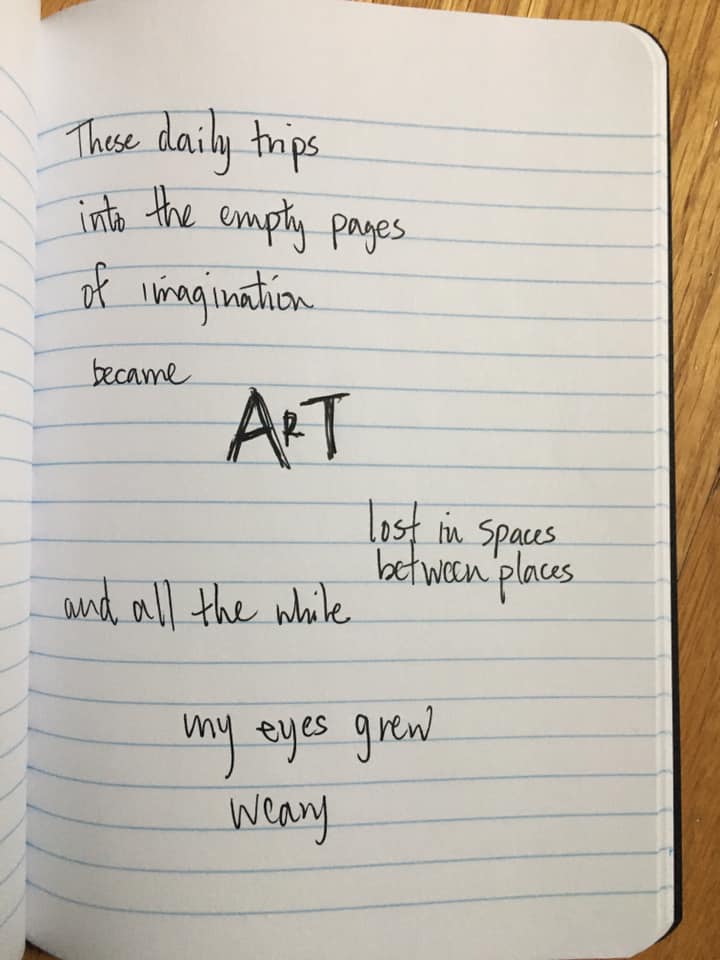 These daily trips
into the empty pages
of imagination
became
ART
lost in spaces
between places
and all the while
my eyes grew
weary